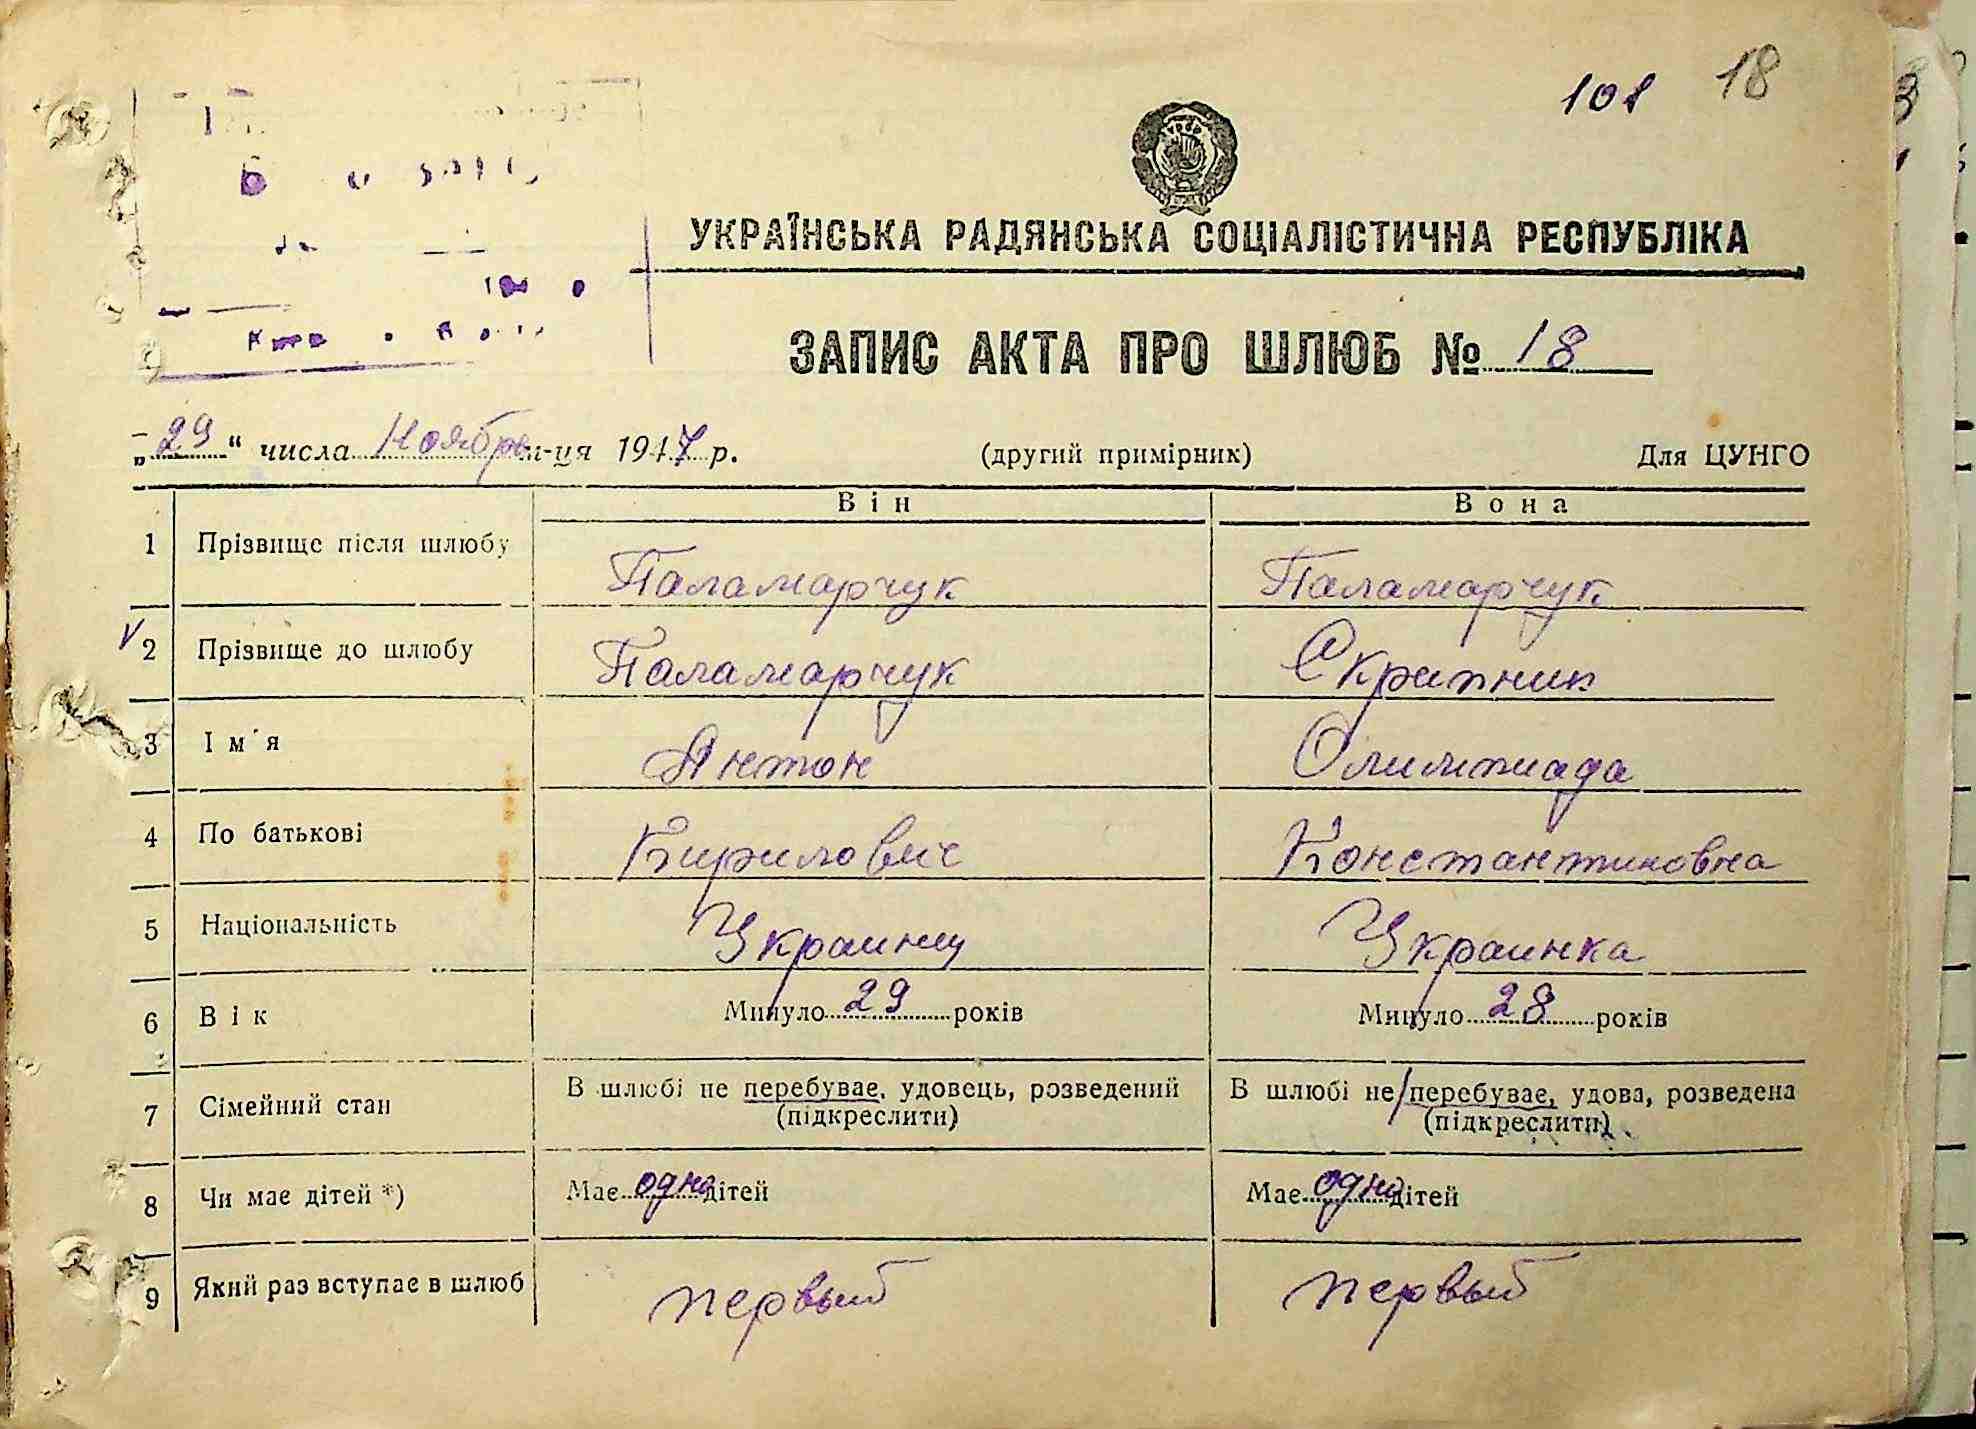 101 18
УКРАЇНСЬКА РАДЯНСЬКА СОЦІАЛІСТИЧНА РЕСПУБЛІКА
ЗАПИС АКТА ПРО ШЛЮБ № 18
„29“ числа Ноября м-ця 1947 р. (другий примірник) Для ЦУНГО
Він Вона
1 Прізвище після шлюбу Паламарчук Паламарчук
2 Прізвище до шлюбу Паламарчук Скрипник
3 Ім'я Антон Олимпиада
4 По батькові Кирилович Константиновна
5 Національність Украинец Украинка
6 Вік Минуло 29 років Минуло 28 років
7 Сімейний стан В шлюбі не перебуває, удовець, розведений В шлюбі не перебуває, удова, розведена
(підкреслити) (підкреслити)
8 Чи має дітей *) Має одно дітей Має одно дітей
9 Який раз вступає в шлюб первый первый